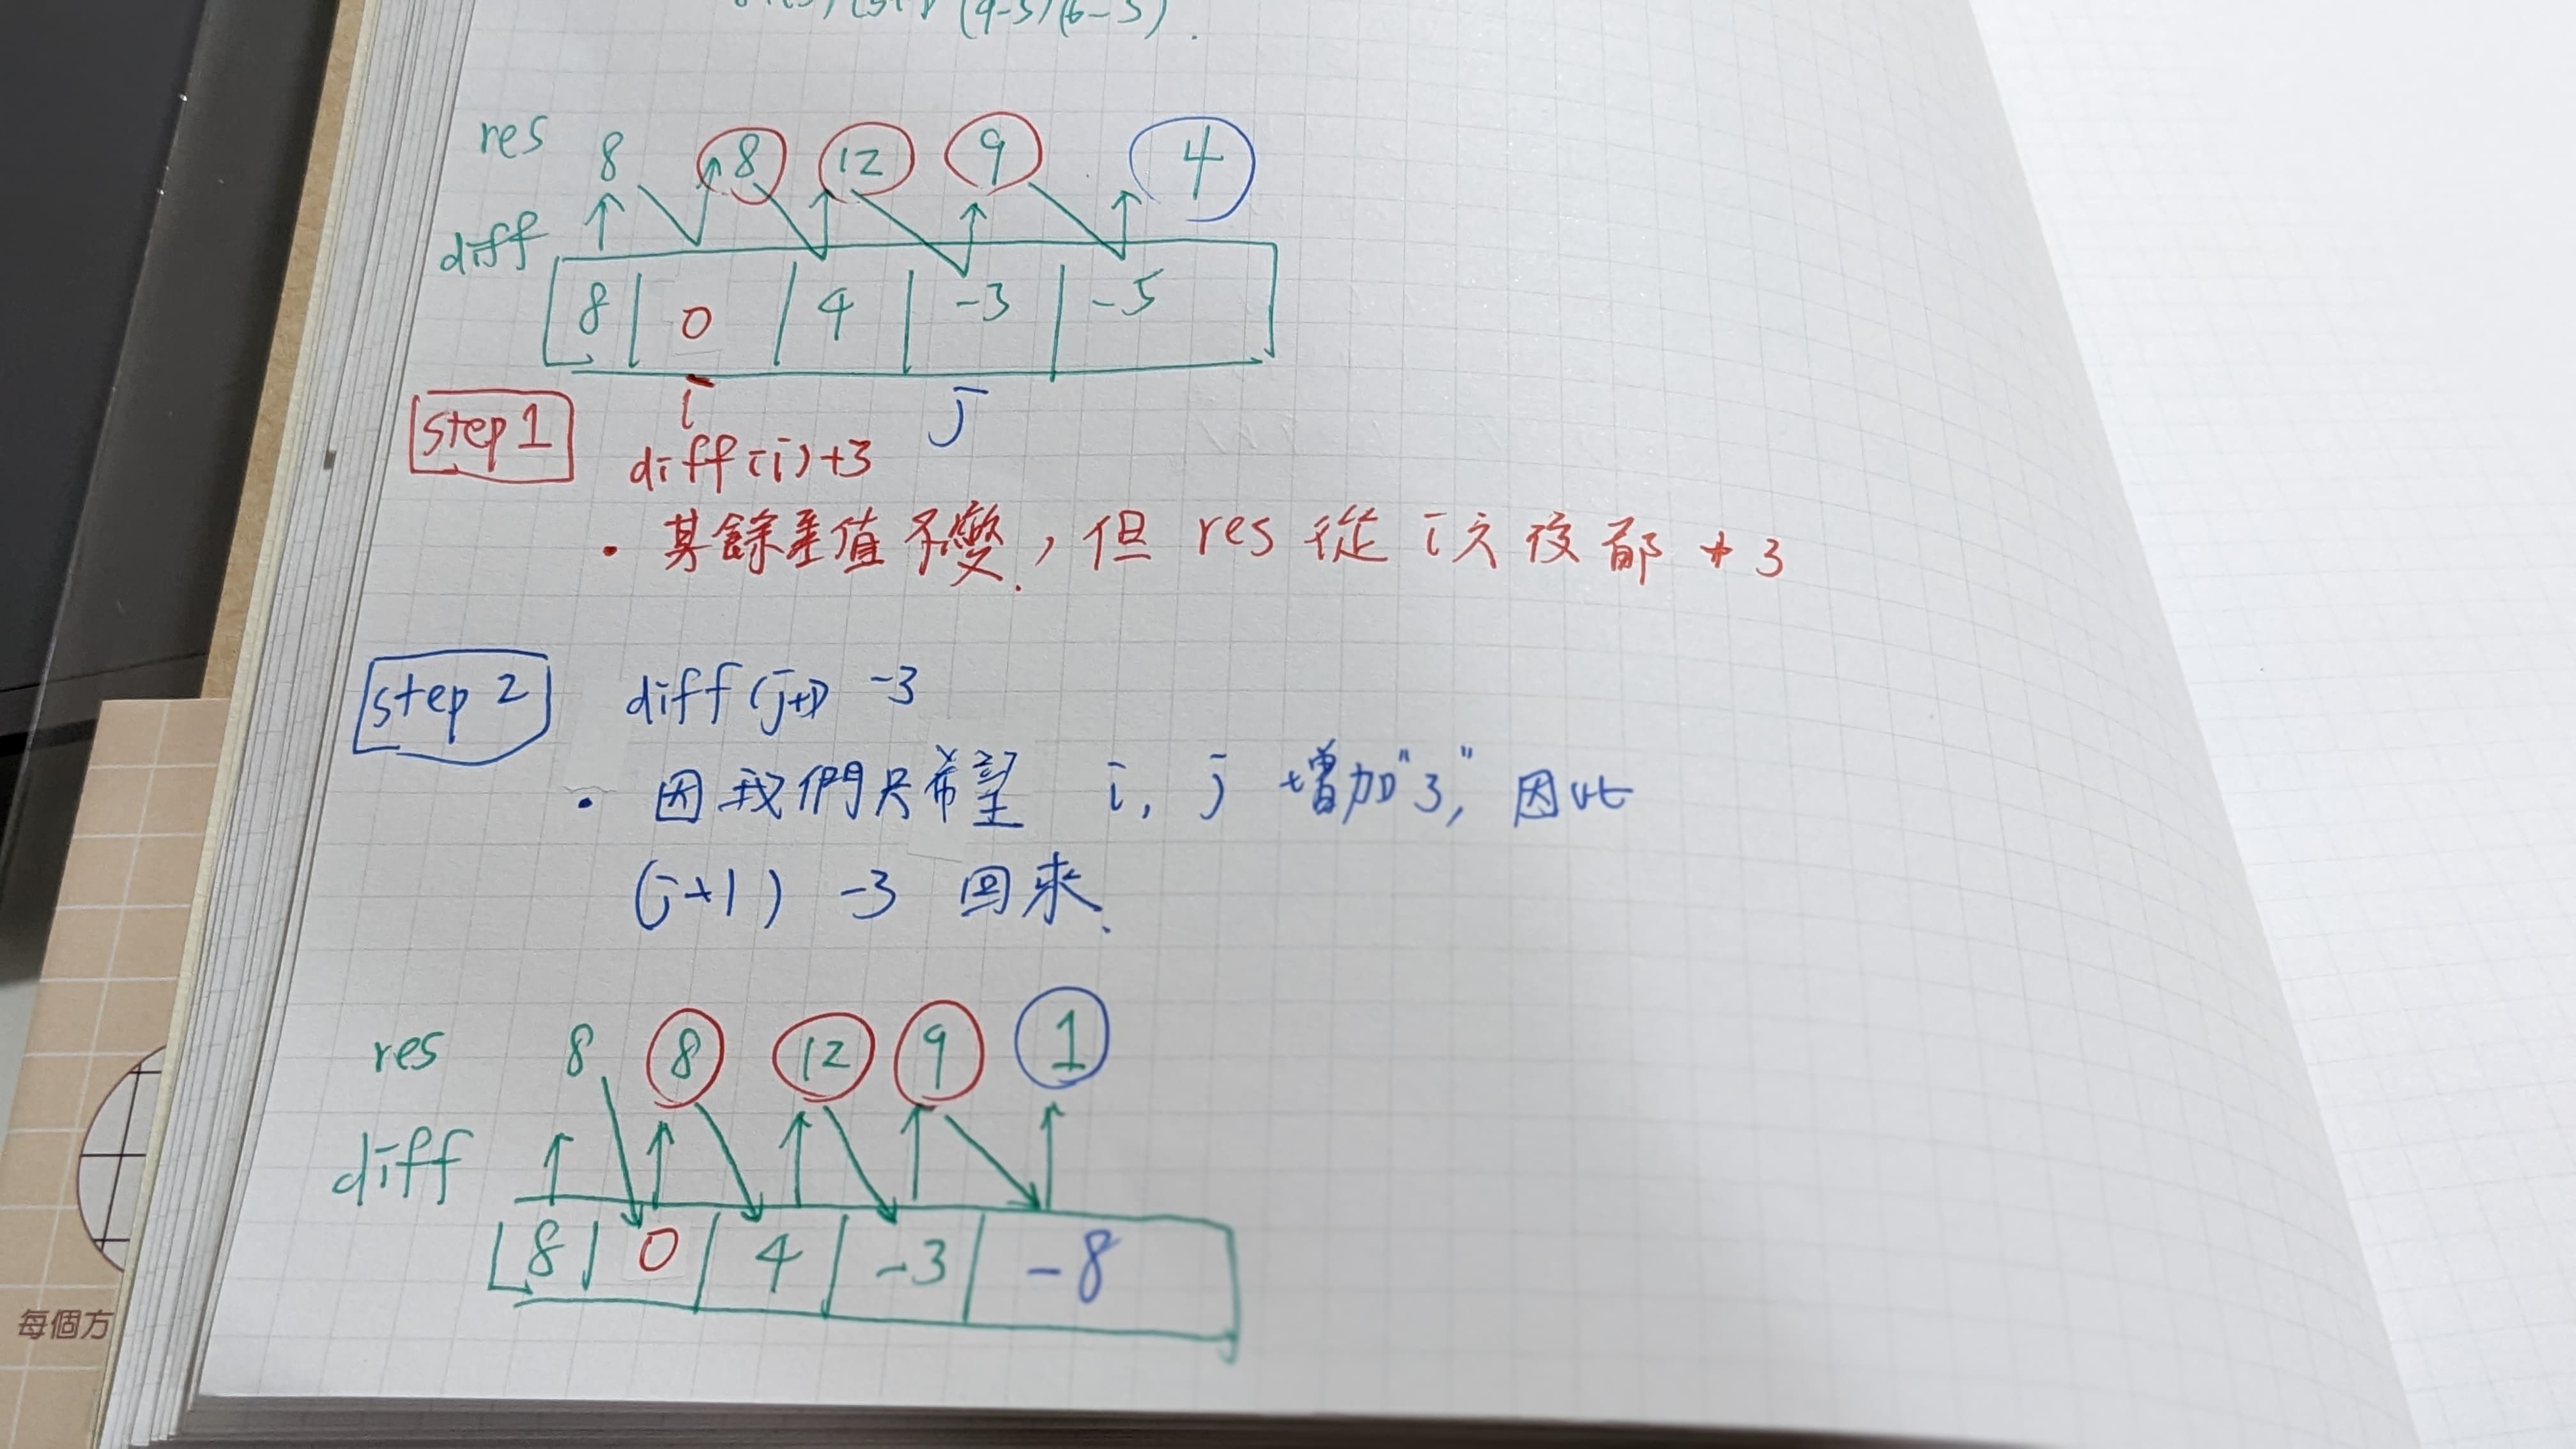 (9-3)(6-5).
res 8 8 12 9 4
diff
8 0 4 -3 -5
i j
step 1 diff(i)+3
• 其餘差值不變, 但 res 從 i 之後都 +3
step 2 diff(j+1) -3
• 因我們只希望 i, j 增加"3," 因此
(j+1) -3 回來.
res 8 8 12 9 1
diff
8 0 4 -3 -8
每個方